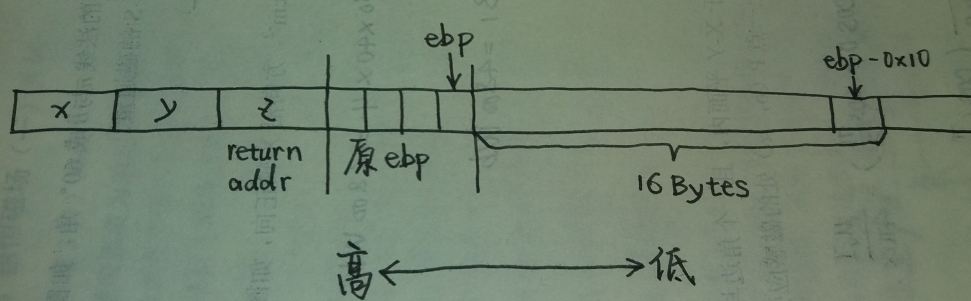 ebp
ebp-0x10
x y z
return addr
原 ebp
16 Bytes
高 低